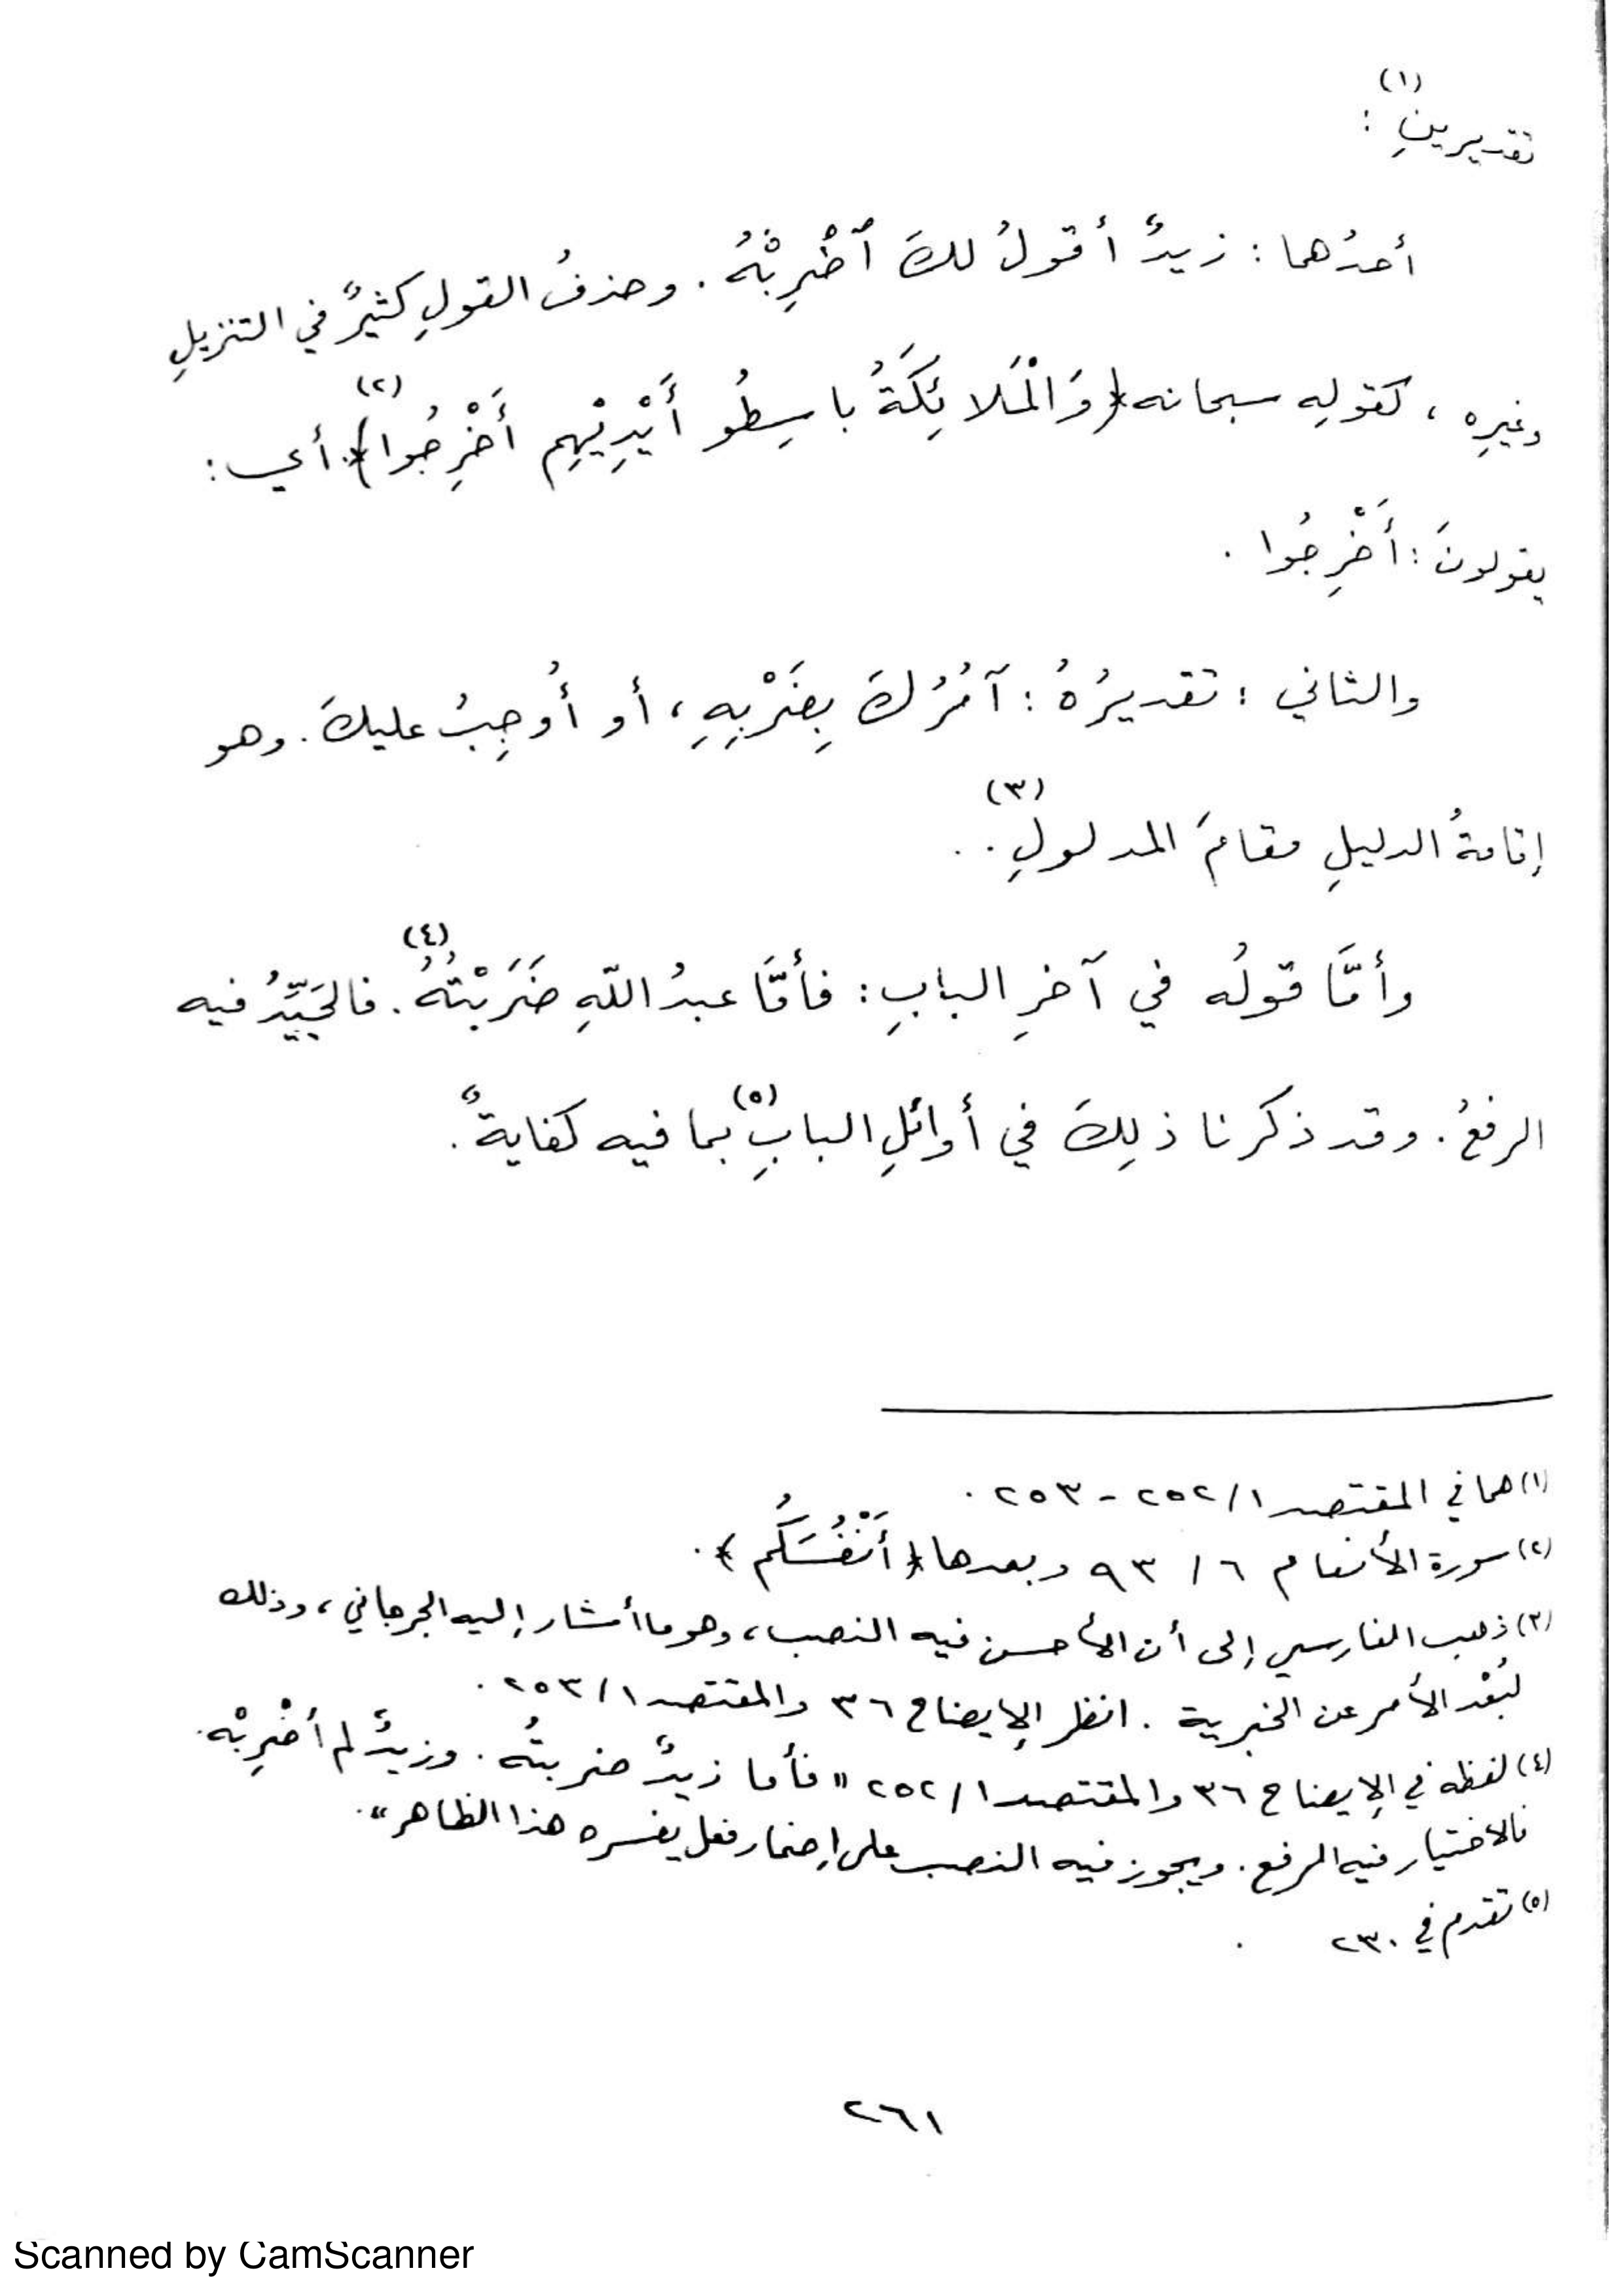 تقديرينِ(١) :
أحدُهما : زيدٌ أقولُ لكَ ٱضْرِبْهُ . وحذفُ القولِ كثيرٌ في التنزيلِ
وغيرِه ، كقولِه سبحانه ﴿وَالْمَلائِكَةُ باسِطُو أَيْدِيْهِم أَخْرِجُوا﴾(٢). أي :
يقولونَ : أَخْرِجُوا .
والثاني : تقديرُهُ : آمُرُكَ بِضَرْبِهِ ، أو أُوجِبُ عليكَ . وهو
إقامةُ الدليلِ مقامَ المدلولِ(٣) . .
وأمَّا قولُه في آخرِ البابِ : فأمَّا عبدُ اللّهِ ضَرَبْتُهُ(٤) . فالجَيِّدُ فيه
الرفعُ . وقد ذكرنا ذلِكَ في أوائلِ البابِ(٥) بما فيه كفايةٌ .
(١) هما في المقتصد ١/ ٢٥٢ - ٢٥٣ .
(٢) سورة الأنعام ٦ / ٩٣ وبعدها ﴿أَنْفُسَكُم﴾ .
(٣) ذهب الفارسي إلى أن الأحسن فيه النصب ، وهو ما أشار إليه الجرجاني ، وذلك
لبُعْد الأمر عن الخبرية . انظر الإيضاح ٣٦ والمقتصد ١/ ٢٥٣ .
(٤) لفظه في الإيضاح ٣٦ والمقتصد ١/ ٢٥٢ " فأما زيدٌ ضربتُه . وزيدٌ لم أضْرِبْه .
فالاختيار فيه الرفع . ويجوز فيه النصب على إضمار فعل يفسره هذا الظاهر " .
(٥) تقدم في ٢٣٠ .
٢٦١
Scanned by CamScanner